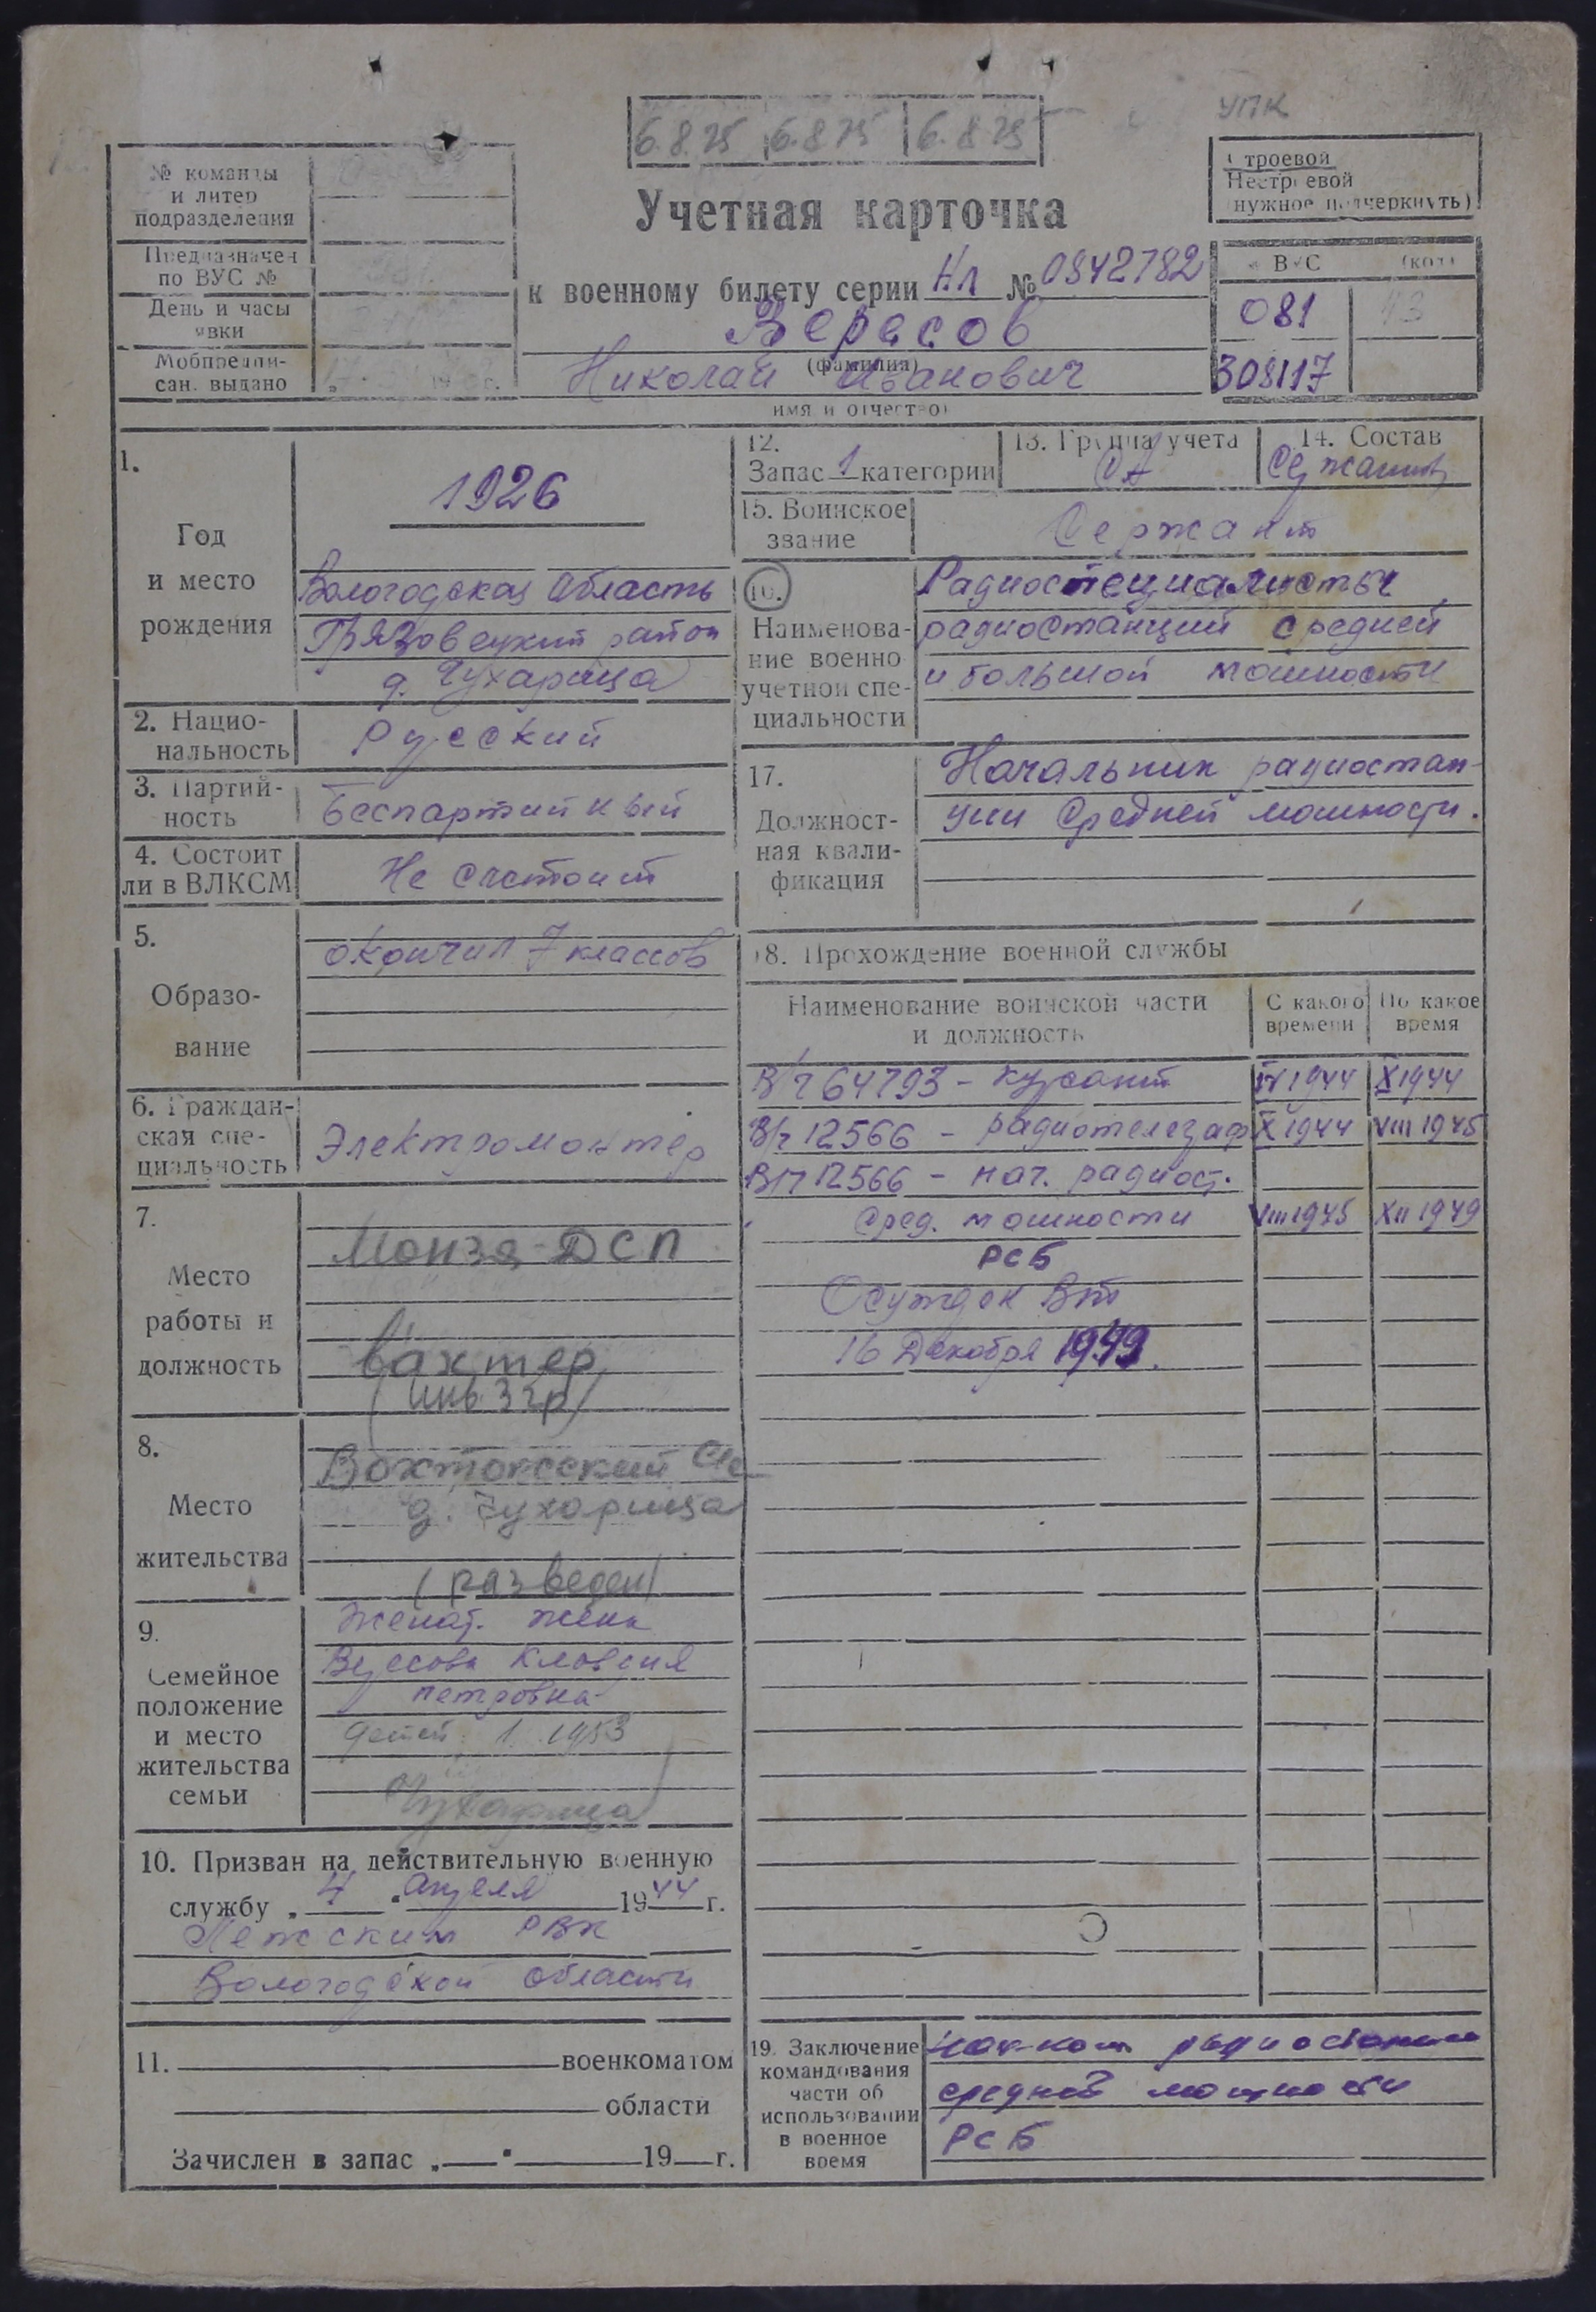 6.8.75 6.8.75 6.8.75
УПК
№ команды
и литер
подразделения
Предназначен
по ВУС №
День и часы
явки
Мобпредпи-
сан. выдано
Учетная карточка
к военному билету серии НЛ № 0842782
Версов
(фамилия)
Николай Иванович
имя и отчество)
Строевой
Нестроевой
нужное подчеркнуть)
ВУС (код)
081 13
308117
1.
Год
и место
рождения
1926
Вологодская область
Грязовецкий район
д. Чухарица
2. Нацио-
нальность
Русский
3. Партий-
ность
Беспартийный
4. Состоит
ли в ВЛКСМ
Не состоит
5.
Образо-
вание
окончил 7 классов
6. Граждан-
ская спе-
циальность
Электромонтер
7.
Место
работы и
должность
Монза ДСП
вахтер
(инв 3 гр)
8.
Место
жительства
Вохтожский
д. Чухарица
(разведен)
9.
Семейное
положение
и место
жительства
семьи
Женат. жена
Клавдия
Петровна
детей 1. 1953
Чухарица
10. Призван на действительную военную
службу „ 4 " апреля 1944 г.
Лежским РВК
Вологодской области
11. военкоматом
области
Зачислен в запас „ " 19 г.
12.
Запас 1 категории
13. Группа учета
СА
14. Состав
Сержант
15. Воинское
звание
Сержант
16.
Наименова-
ние военно
учетной спе-
циальности
Радиоспециалисты
радиостанций средней
и большой мощности
17.
Должност-
ная квали-
фикация
Начальник радиостан-
ции средней мощности.
18. Прохождение военной службы
Наименование воинской части
и должность
С какого
времени
По какое
время
В/ч 64793 - курсант IV 1944 X 1944
В/ч 12566 - радиотелеграф X 1944 VIII 1945
В/ч 12566 - нач. радиост.
Сред. мощности VIII 1945 XII 1949
РСБ
Осужден ВТ
16 Декабря 1949.
19. Заключение
командования
части об
использовании
в военное
время
нач-ком радиостанции
средней мощности
РСБ